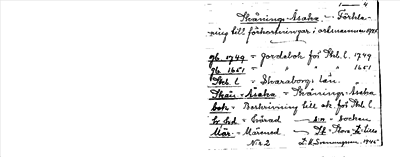 1 — 4
Skånings-Åsaka. — Förkla-
ring till förkortningar i ortnamnen 1925
jb. 1749 = Jordebok för Skb. l. 1749
jb. 1651 = " " " 1651
Skb. l = Skaraborgs län.
Skån - Åsaka = Skånings-Åsaka
besk = Beskrivning till ek. för Skb. l.
hd = Härad — sn. = Socken
Mär = Märened St = Stora, L = Lilla
N:o 2